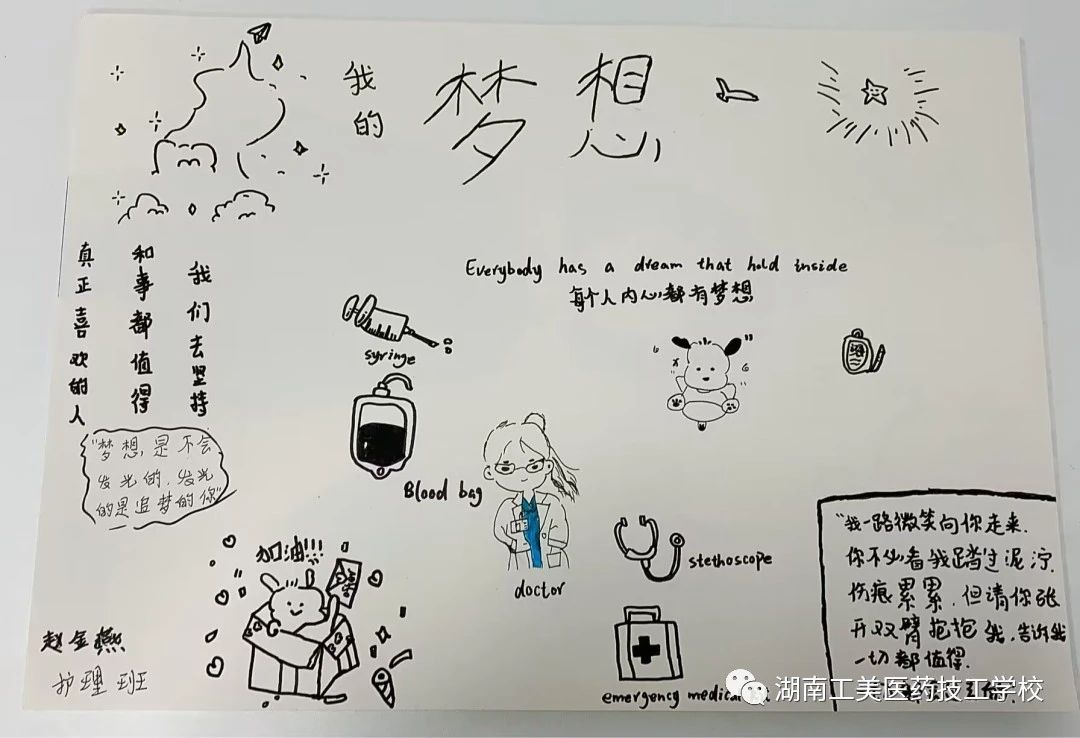 我的
梦想
Everybody has a dream that hold inside
每个人内心都有梦想
我们去坚持
和事都值得
真正喜欢的人
"梦想是不会
发光的,发光
的是追梦的你"
syringe
Blood bag
doctor
stethoscope
加油!!!
赵金燕
护理班
emergency medical
"我一路微笑向你走来.
你不必看我踏过泥泞.
伤痕累累,但请你张
开双臂抱抱我,告诉我
一切都值得.
湖南工美医药技工学校